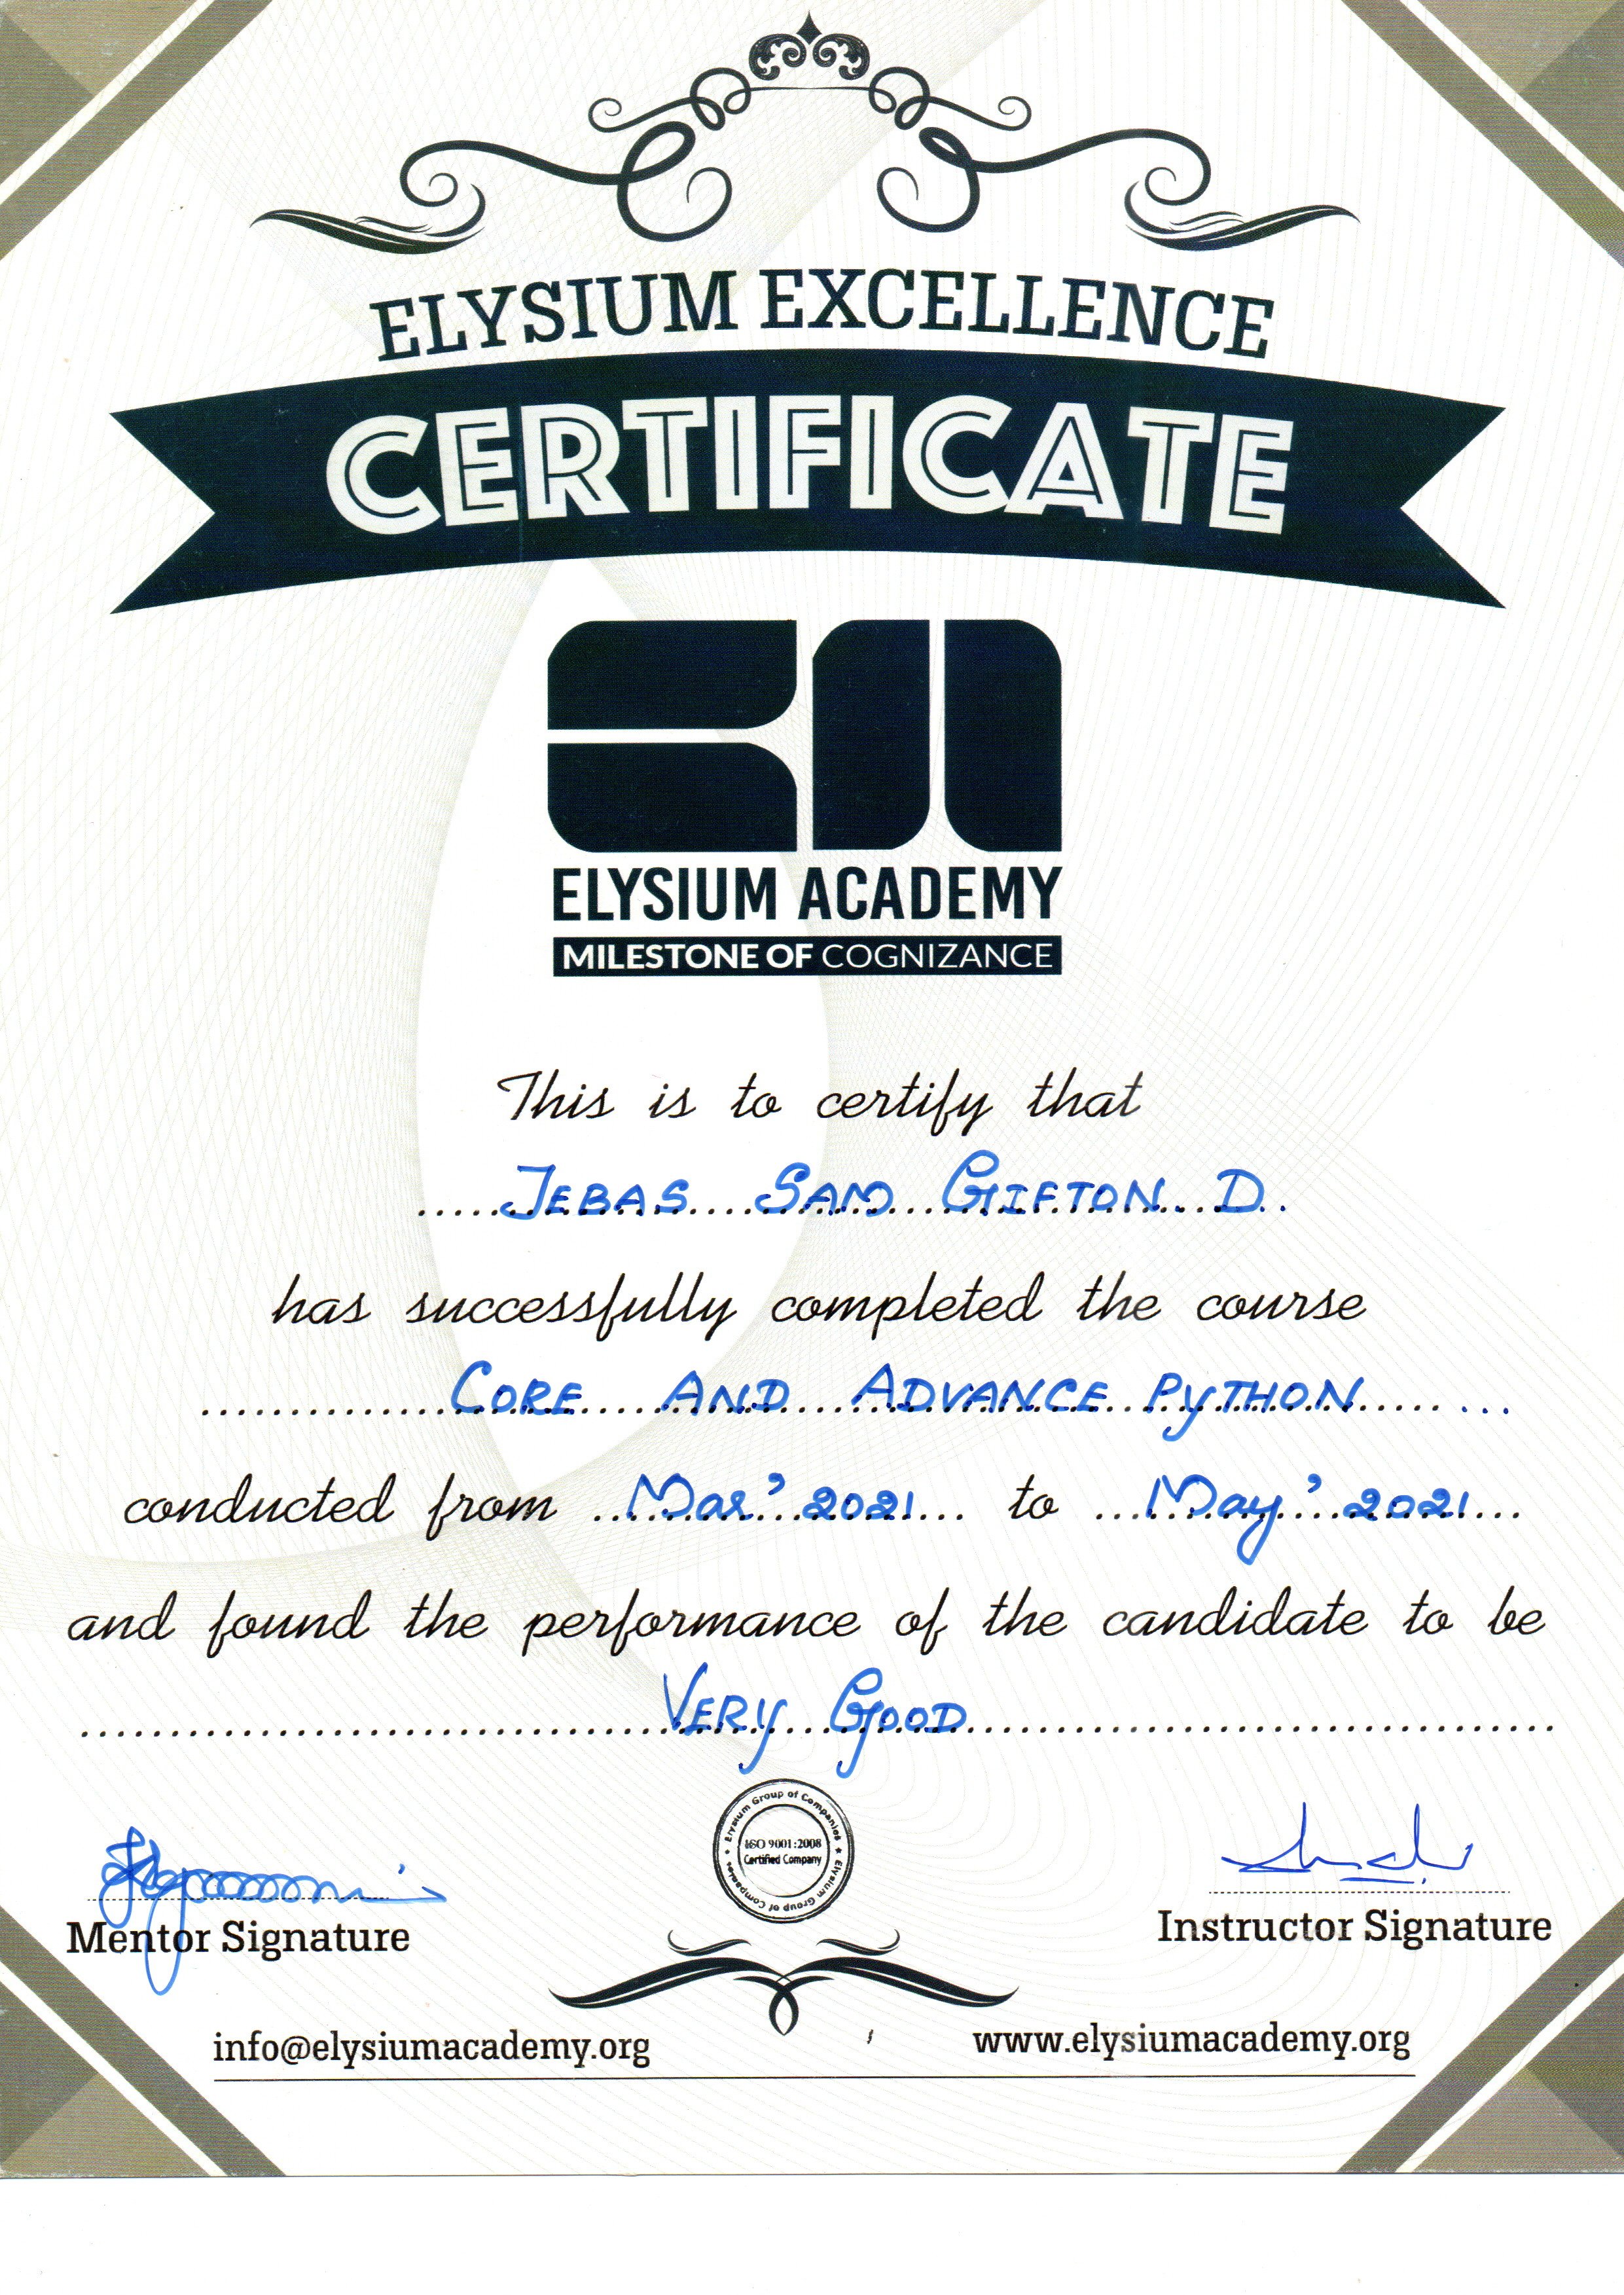 ELYSIUM EXCELLENCE
CERTIFICATE
ELYSIUM ACADEMY
MILESTONE OF COGNIZANCE
This is to certify that
JEBAS SAM GIFTON. D.
has successfully completed the course
CORE AND ADVANCE PYTHON
conducted from Mar' 2021 to May' 2021
and found the performance of the candidate to be
VERY GOOD
Elysium Group of Companies * Elysium Group of Companies *
ISO 9001:2008
Certified Company
Mentor Signature
Instructor Signature
info@elysiumacademy.org
www.elysiumacademy.org